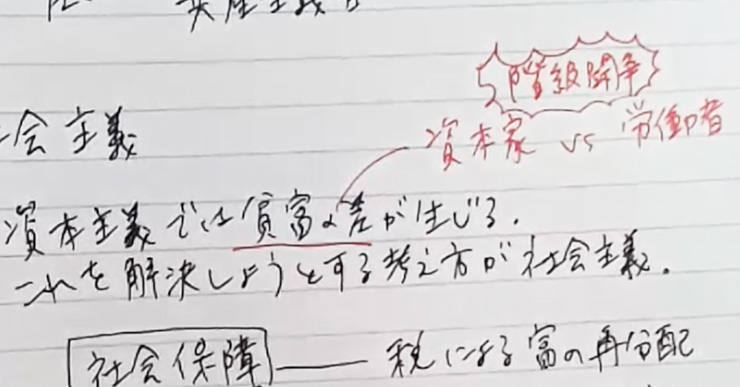 階級闘争
資本家 vs 労働者
社会主義
資本主義では貧富の差が生じる.
これを解決しようとする考え方が社会主義.
社会保障 —— 税による富の再分配